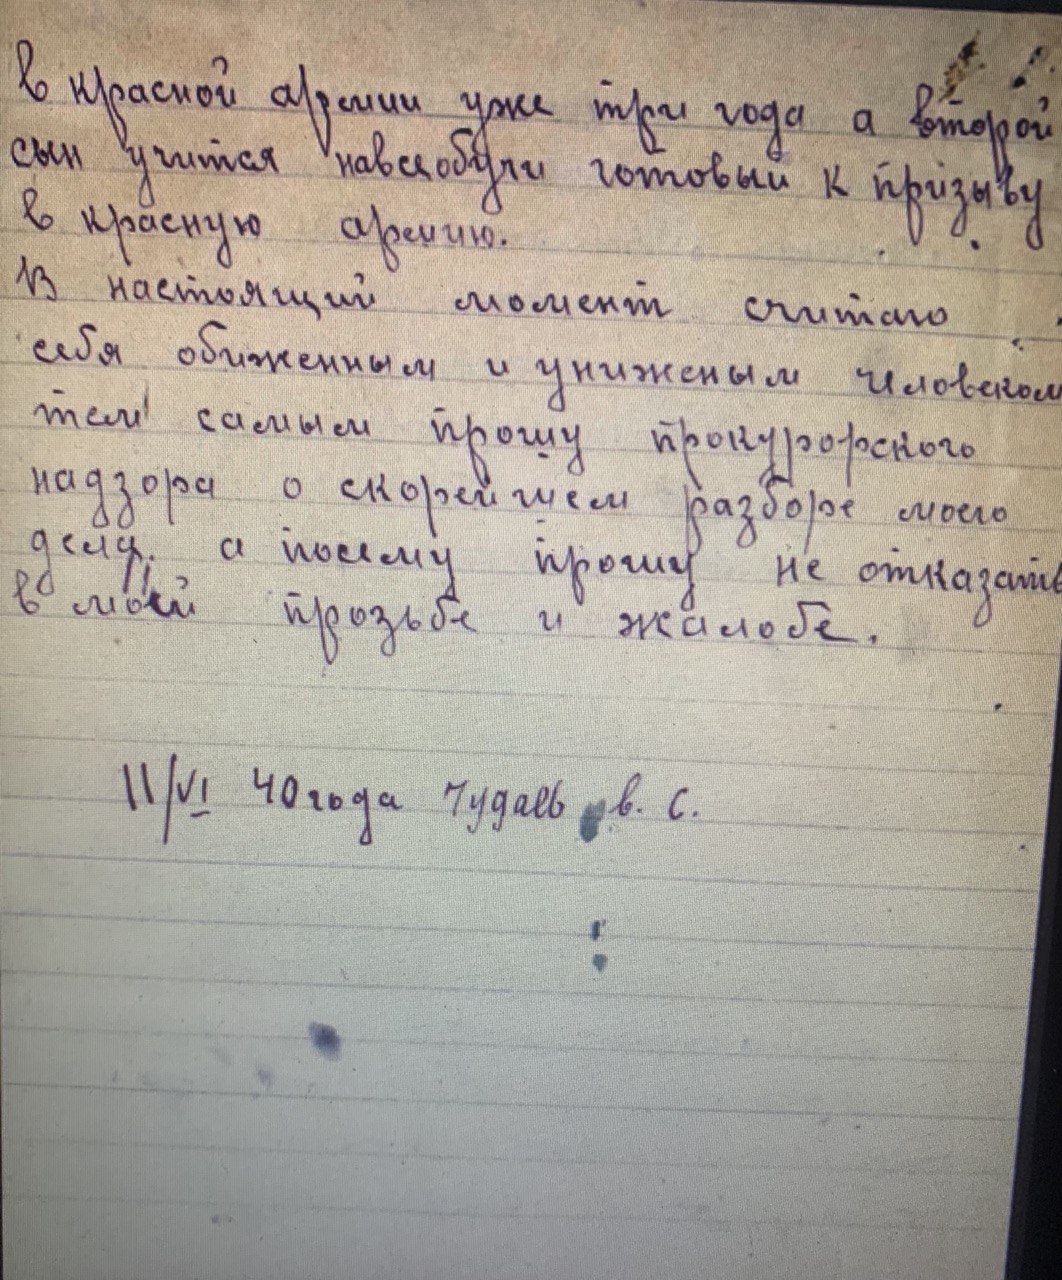 в красной армии уже три года а второй
сын учится навсеобучи готовый к призыву
в красную армию.
В настоящий момент считаю
себя обиженным и униженым человеком
тем самым прошу прокурорского
надзора о скорейшем разборе моего
дела. а посему прошу не отказать
в моей прозьбе и жалобе.
11/VI 40 года Чудаев в. С.